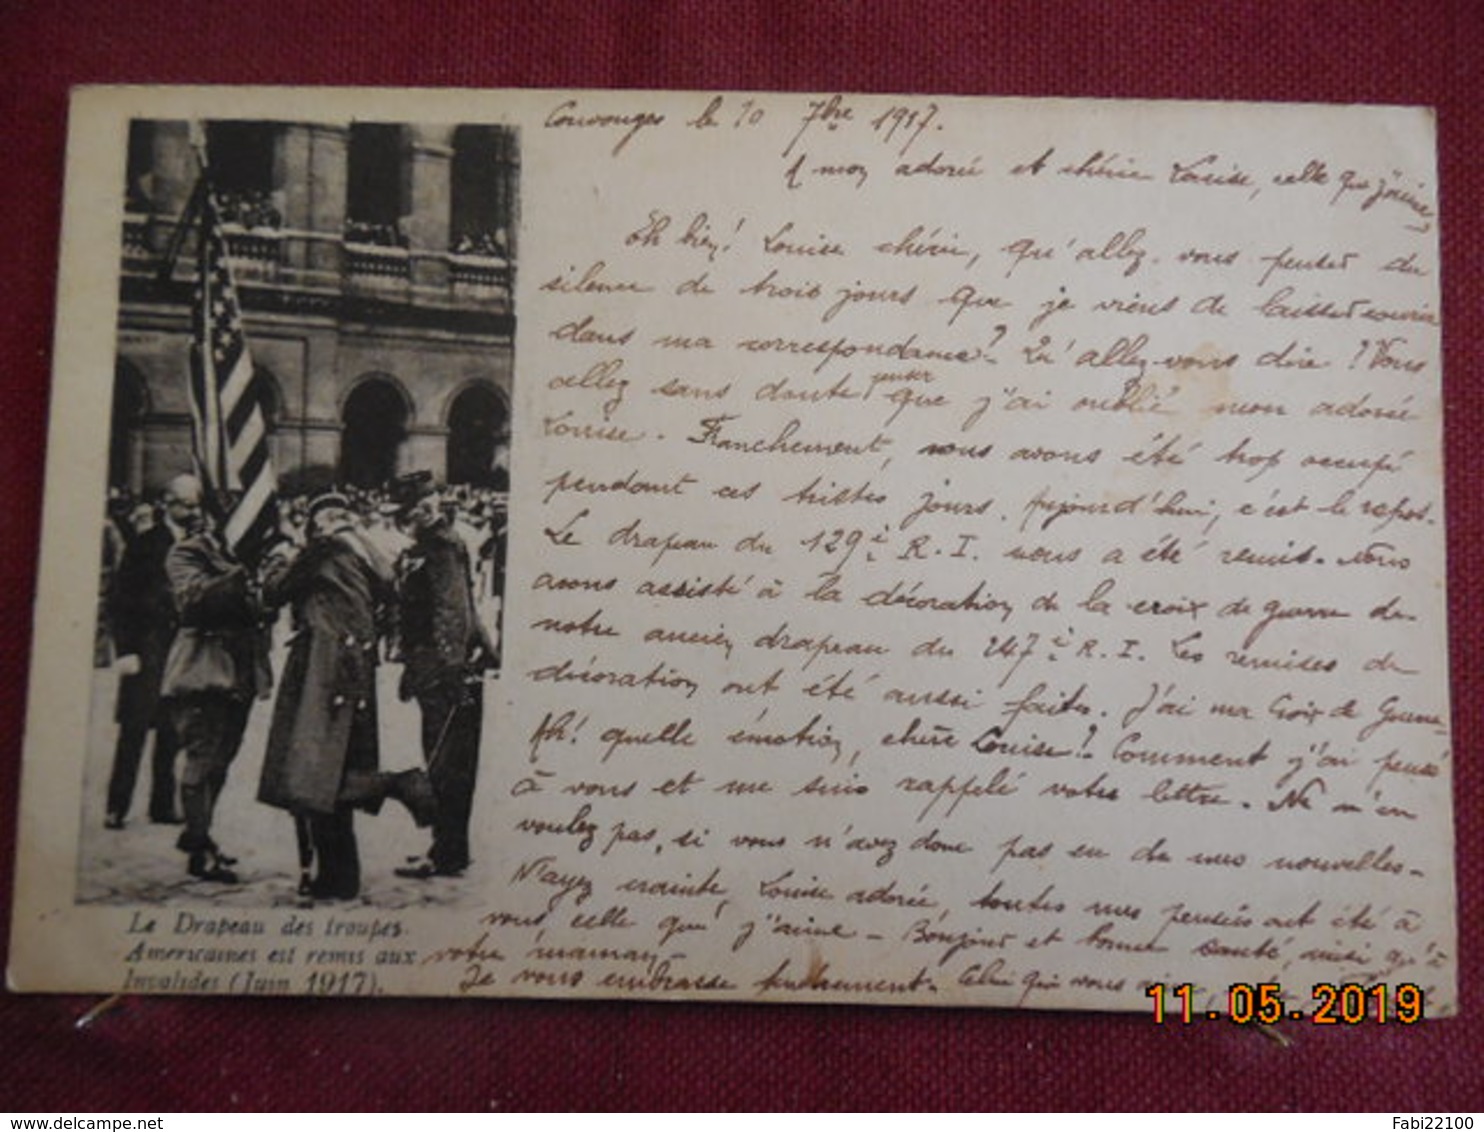 Couvonges le 10 7bre 1917.
A mon adorée et chérie Louise, celle que j'aime,
Eh bien! Louise chérie, qu'allez-vous penser du
silence de trois jours que je viens de laisser courir
dans ma correspondance? Qu'allez-vous dire? Vous
allez sans doute penser que j'ai oublié mon adorée
Louise. Franchement, nous avons été trop occupé
pendant ces tristes jours. Aujourd'hui, c'est le repos.
Le drapeau du 129è R.I. nous a été remis. Nous
avons assisté à la décoration de la croix de guerre de
notre ancien drapeau du 247è R.I. Les remises de
décoration ont été aussi faites. J'ai ma Croix de Guerre
Ah! quelle émotion, chère Louise!- Comment j'ai pensé
à vous et me suis rappelé votre lettre. Ne m'en
voulez pas, si vous n'avez donc pas eu de mes nouvelles-
N'ayez crainte, Louise adorée, toutes mes pensées ont été à
vous, celle que j'aime - Bonjour et bonne santé, ainsi qu'à
votre maman-
Je vous embrasse tendrement. Celui qui vous
Le Drapeau des troupes
Americaines est remis aux
Invalides (Juin 1917).
11.05.2019
www.delcampe.net
Fabi22100